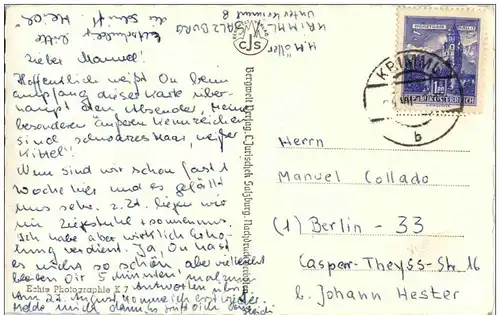 Entschuldert bitte
die Schrift Heidi
H. Möller
KRIMML
Unterkrimml 8
SALZBURG
Lieber Manuel!
Hoffentlich weißt Du beim
Empfang dieser Karte über-
haupt den Absender, meine
besonderen äußeren Kennzeichen
sind schwarzes Haar, weißer
Kittel!
Nun sind wir schon fast 1
Woche hier und es gefällt
uns sehr. z.Zt. liegen wir
im Liegestuhl
Ich habe aber wirklich Erho-
lung verdient. Ja, Du hast
es nicht so schön aber vielleicht
bleiben Dir 5 Minuten mal zum
Antworten übrig
Am 27. August komme ich erst wieder
melde mich dann
Echte Photographie K 7
CJS
Bergwelt Verlag, C. Jurischek Salzburg, Nachdruck verboten
REPUBLIK ÖSTERREICH
KRIMML
b
Herrn
Manuel Collado
(1) Berlin - 33
Casper-Theyss-Str. 16
b. Johann Hester